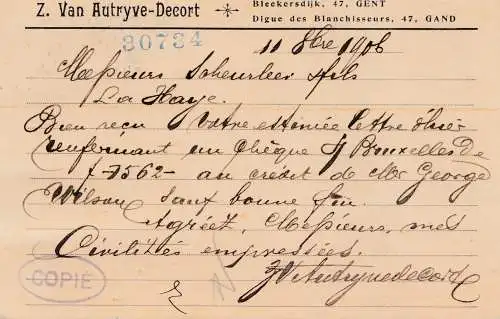 Z. Van Autryve-Decort
Bleekersdijk, 47, GENT
Digue des Blanchisseurs, 47, GAND
30734
11 Xbre 1906
Messieurs Scheurleer & fils
La Haye.
Bien reçu votre estimée lettre d'hier
renfermant un chèque s/ Bruxelles de
f 7562- au crédit de Mr George
Wilson sauf bonne fin.
Agréez, Messieurs, mes
Civilités empressées.
ZVAutryvedecort
COPIÉ